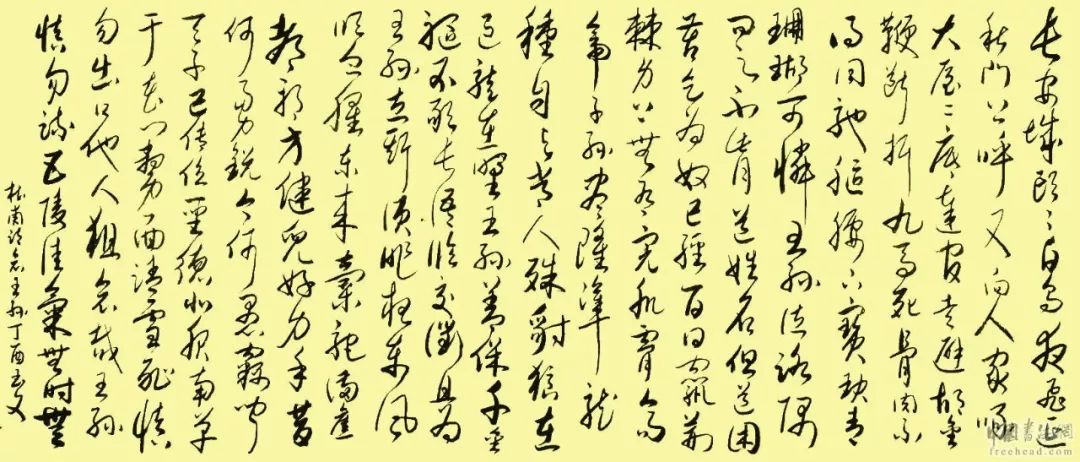 長安城頭〻白烏夜飛延
秋門上呼又向人家啄
大屋〻底達官走避胡金
鞭断折九馬死骨肉不
得同馳驅腰下寶玦青
珊瑚可憐王孫泣路隅
問之不肯道姓名但道困
苦乞為奴已經百日竄荆
棘身上無有完肌膚高
帝子孫盡隆準龍
種自与常人殊豺狼在
邑龍在野王孫善保千金
軀不敢長語臨交衢且為
王孫立斯須昨夜東風
吹血腥東来橐駝滿舊
都朔方健兒好身手昔
何勇銳今何愚竊聞
天子已傳位聖德北服南單
于花門剺面請雪恥慎
勿出口他人狙哀哉王孫
慎勿疏五陵佳氣無時無
杜甫詩哀王孫丁酉
freehead.com